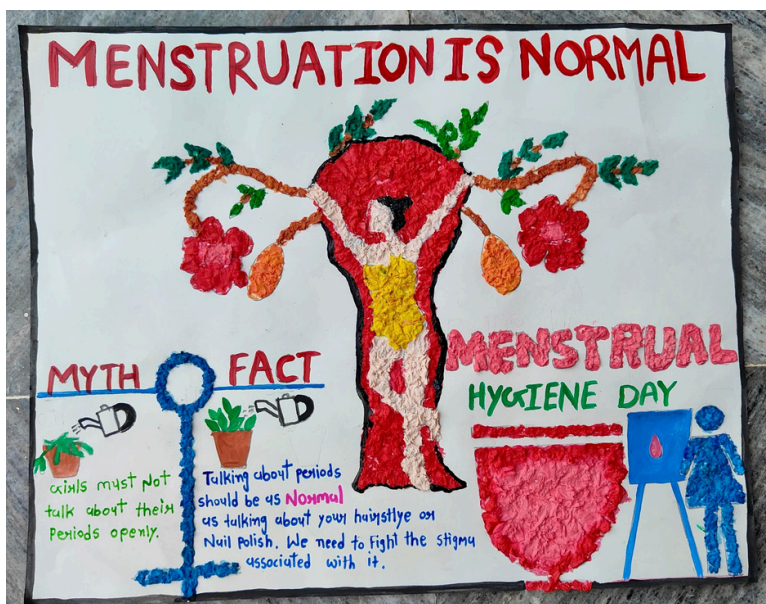 MENSTRUATION IS NORMAL
MYTH
FACT
Girls must Not
talk about their
Periods openly.
Talking about periods
should be as Normal
as talking about your hairstlye or
Nail polish. We need to Fight the stigma
associated with it.
MENSTRUAL
HYGIENE DAY